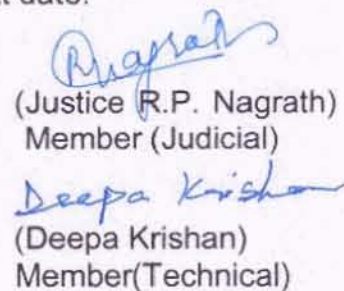 t date.
Rnagrath
(Justice R.P. Nagrath)
Member (Judicial)
Deepa Krishan
(Deepa Krishan)
Member(Technical)